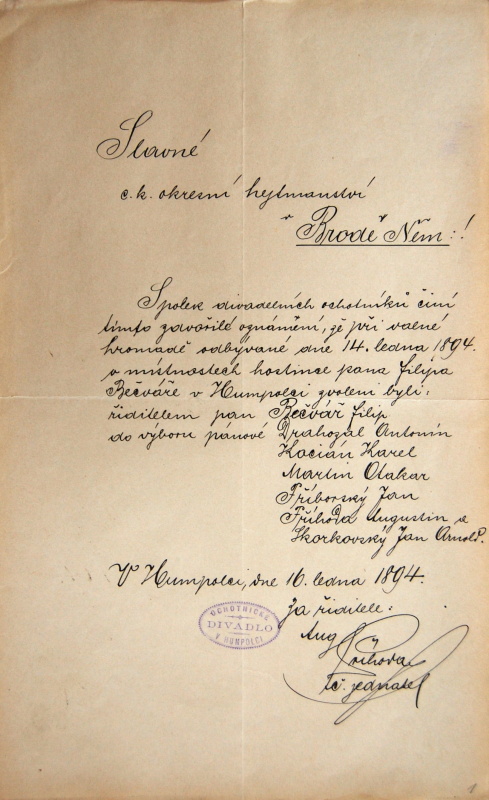 Slavné
c. k. okresní hejtmanství
v
Brodě Něm.!
Spolek divadelních ochotníků činí
tímto zdvořilé oznámění, že při valné
hromadě odbývané dne 14. ledna 1894.
v místnostech hostince pana Filipa
Bečváře v Humpolci zvoleni byli:
ředitelem pan Bečvář Filip
do výboru pánové Drahozal Antonín
Kocián Karel
Martin Otakar
Příborský Jan
Příhoda Augustin a
Skorkovský Jan Arnold.
V Humpolci, dne 16. ledna 1894.
Za ředitele:
OCHOTNICKÉ
DIVADLO
V HUMPOLCI
Aug Příhoda
t.č. jednatel
1